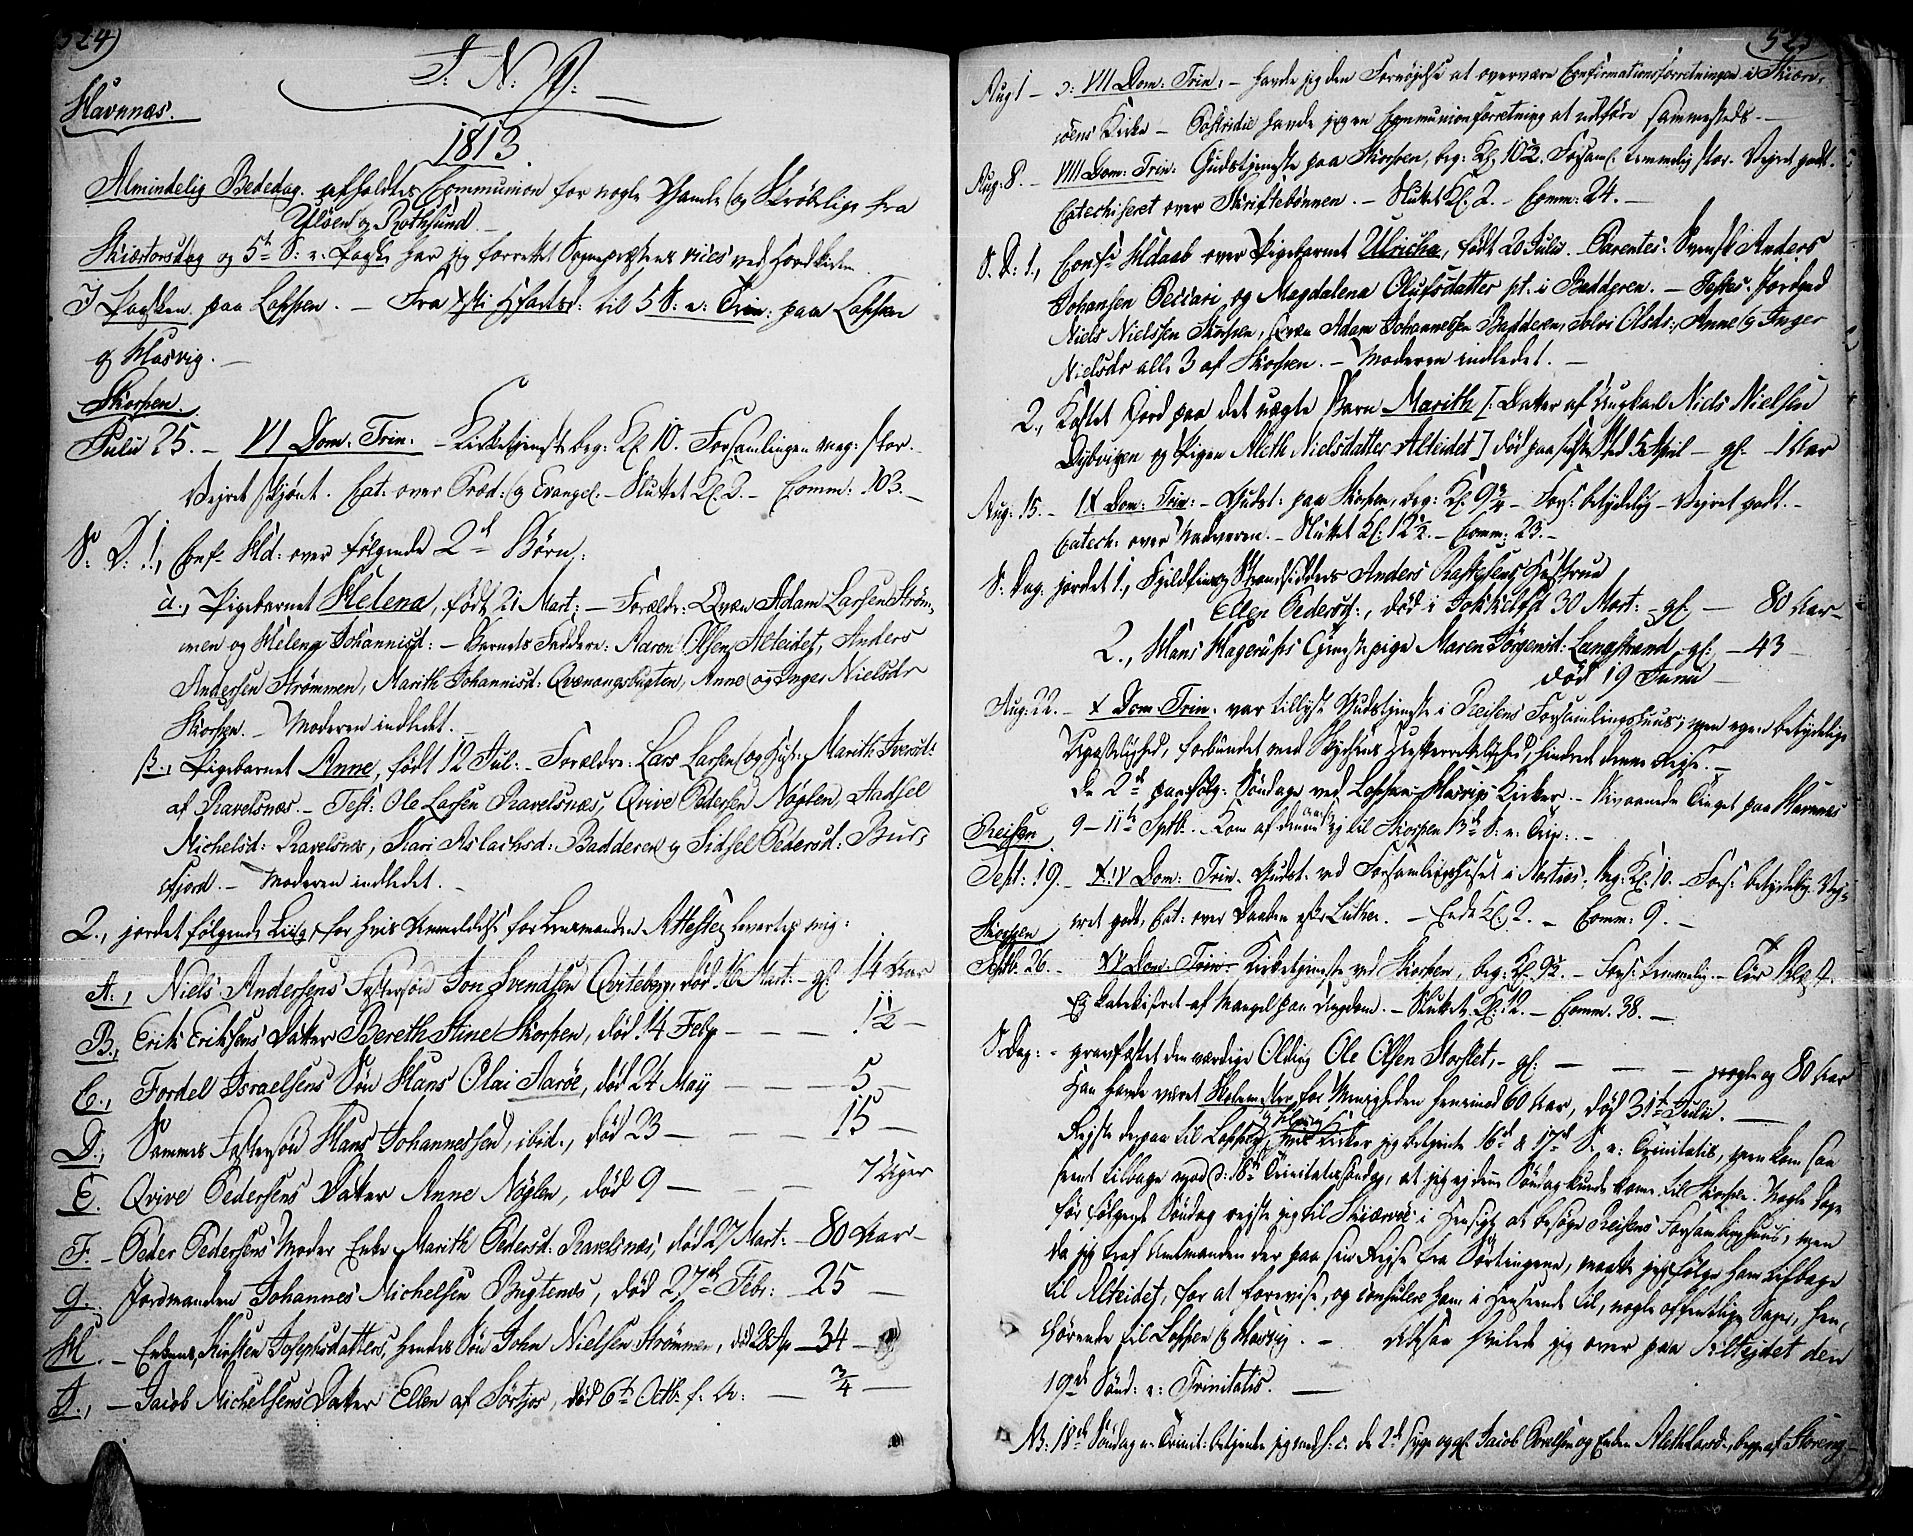 324)
J: N: J:
Havnnæs.
1813
Almindelig Bededag. afholdtes Communion for nogle Gamle og Skrøbelige fra
Uløen og Rothsund
Skiærtorsdag og 5te S: e: Paaske har jeg forrettet Sogneprestens vices ved
I Paasken paa Loppen. — Fra til 5 S: e: Trin: paa Loppen
og Hasvig. —
Skorpen.
Julii 25. — VI Dom: Trin: — Kirketjeneste beg: Kl. 10. Forsamlingen meg: stor.
Vejret skjønt. Cat. over Præd: og Evangel. — Sluttet Kl. 2. — Comm: 103. —
S: D: 1., Conf. Hd: over følgende 2de Børn:
α., Pigebarnet Helena, født 21 Mart: — Forældr: Qvæn Adam Larsen Strøm,
men og Helena Johannisd: — Barnets Faddere: Aaron Olsen Alteidet, Anders
Andersen Strømmen, Marith Johannisd: Qvænangsbugten, Anne og Inger Nielsdr
Skorpen. — Moderen indledet. —
β., Pigebarnet Anne, født 12 Jul: — Forældre: Lars Larsen og Marith Iversd:
af Ravelsnæs. — Test: Ole Larsen Ravelsnæs, Qvive Pedersen Nøglen, Aadsel
Michelsd: Ravelsnæs, Kari Aslachsd: Badderen og Sidsel Pedersd: Bur=
fjord. — Moderen indledet. —
2., jordet følgende Liig, for hvis Anmeldelse for Lensmanden Attester leverdes mig:
A., Niels Andersens Fostersøn Jon Svendsen Qvitebær, død 16 Mart: — gl. 14 Aar
B., Erik Eriksens Datter Bereth Stine Skorpen, død 14 Febr — — — 1½ —
C., Fordel Israelsens Søn Hans Olai Aarøe, død 24 May — — — 5 —
D., Sammes Fostersøn Hans Johannessen, ibid., død 23 — — — 15 —
E. Qvive Pedersens Datter Anne Nøglen, død 9 — — — 7 Uger
F. — Peder Pedersens Moder Enke Marith Pedersd: Ravelsnæs, død 27 Mart: — 80 Aar —
G. Jordmanden Johannes Michelsen Bugtenæs, død 27de Febr: — 25 —
H. — Enkens Kirsten Josephsdatters, hendes Søn John Nielsen Strømmen, død 28 Ap — 34 —
J., — Jacob Michelsens Datter Ellen af Sørfjor, død 6te Octb. f. A: — ¾ —
325
Aug 1 — ɔ: VII Dom: Trin: — havde jeg den Fornøjelse at overvære Confirmationsforretningen i Skiærv=
øens Kirke — Postridie havde jeg en Communionforretning at udføre sammesteds. —
Aug: 8. — VIII Dom: Trin: Gudstjeneste paa Skorpen, beg: Kl. 10½. Forsaml. temmelig stor. Vejret godt.
Catechiseret over Skriftebønnen. — Sluttet Kl. 2. — Comm: 24. —
S. D: 1., Conf: Hdaab over Pigebarnet Ulricha, født 20 Julii. Parentes: Svensk Anders
Johansen Peccari, og Magdalena Olufsdatter pt. i Badderen. — Testes: Jordmd
Niels Nielsen Skorpen, Qvæn Adam Johannessen Badderen, Solvi Olsds:, Anne og Inger
Nielsdr alle 3 af Skorpen. — Moderen indledet. —
2., Kastet Jord paa det uægte Barn Marith [: Datter af Ungkarl Niels Nielsen
Dybvigen og Pigen Aleth Nielsdatter Alteidet] død paa sidste Sted 5 April — gl. 1 Aar
Aug: 15. — IX Dom: Trin: — Gudst: paa Skorpen, beg: Kl. 9¾ — Fors: betydelig — Vejret godt. —
Catech: over Nadveren. — Sluttet Kl: 12½. — Comm: 23. —
S: Dag. jordet 1., Fjeldfin og Strandsidder Anders Hustrue
Ellen Pedersd:, død i Jokkelfd 30 Mart: — gl. — 80 Aar —
2., Hans Hagerups Tjenestepige Maren Jørgensd: Langstrand, gl: — 43 —
død 19 Junii —
Aug: 22. — X Dom: Trin: var tillyst Gudstjeneste i Reisens Forsamlingshuus; men egen betydelige
Upasselighed, forbundet med Skydsens Uefterrettelighed, hindrede denne Rejse. —
De 2de paafølg: Søndage ved Loppen Hasvigs Kirker. — Bivaanede Tinget paa Havnnæs
9 — 11te Sptb. — Kom af denne ej til Skorpen 13de S: e: Trin: —
Reisen
Sept: 19. — XIV Dom: Trin: Gudst. ved Forsamlingshuset i Nortvos. Beg: Kl. 10. — Fors: betydelig. Vej=
ret godt, Cat: over Daaben efter Luther. — Ende Kl: 2. — Comm: 9. —
Skorpen
Sptb: 26. — XV Dom: Trin: Kirketjeneste ved Skorpen, beg: Kl. 9½. — Fors: temmelig —
Ej katekiseret af Mangel paa Ungdom. — Sluttet Kl: 12. — Comm. 38. —
S: Dag: — gravfæstet den værdige Olding Ole Olsen Storslet, — gl: — — — nogle og 80 Aar
Han havde været Skolemester for Menigheden henimod 60 Aar, død 31te Julii. —
Rejste derpaa til Loppens Kirker jeg betjente 16de & 17de S: e: Trinitatis, men kom saa
seent tilbage mod d: 18de Trinitatis Søndag, at jeg ej denne Søndag kunde komme til Skorpen. Nogle Dage
før følgende Søndag rejste jeg til Skiærvøe i Hensigt at besøge Reisens Forsamlingshuus; men
da jeg traf Amtmanden der paa sin Rejse fra Vortingene, maatte jeg følge ham tilbage
til Alteidet, for at forevise, og consulere ham i Henseende til, nogle offentlige Sager, hen=
hørende til Loppen og Hasvig. — Altsaa hvilede jeg over paa Altejdet den
19de Sønd: e: Trinitatis. —
NB: 18de Søndag e: Trinit: betjente jeg med s: c: de 2de syge og gl. Jacob Povelsen og Enken Aleth Larsd:, begge af Storeng —